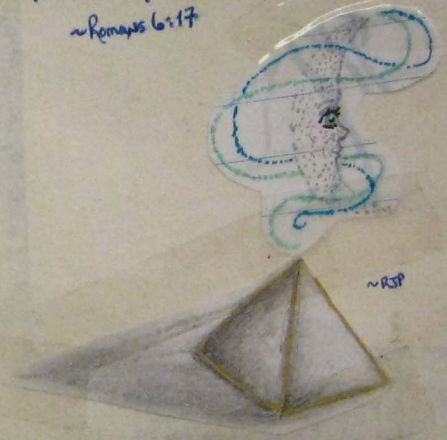 ~Romans 6:17
~RJP